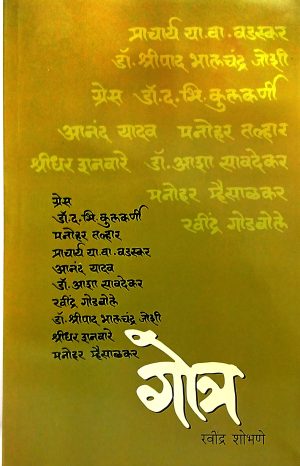 प्राचार्य या.वा. वडस्कर
डॉ. श्रीपाद भालचंद्र जोशी
ग्रेस डॉ. द. भि. कुलकर्णी
आनंद यादव मनोहर तल्हार
श्रीधर शनवारे डॉ. आशा सावदेकर
मनोहर म्हैसाळकर
रवींद्र गोडबोले
ग्रेस
डॉ. द. भि. कुलकर्णी
मनोहर तल्हार
प्राचार्य या. वा. वडस्कर
आनंद यादव
डॉ. आशा सावदेकर
रवींद्र गोडबोले
डॉ. श्रीपाद भालचंद्र जोशी
श्रीधर शनवारे
मनोहर म्हैसाळकर
गोत्र
रवीन्द्र शोभणे